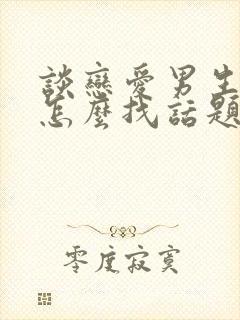 談戀愛男生
怎麼找話題
零度寂寞